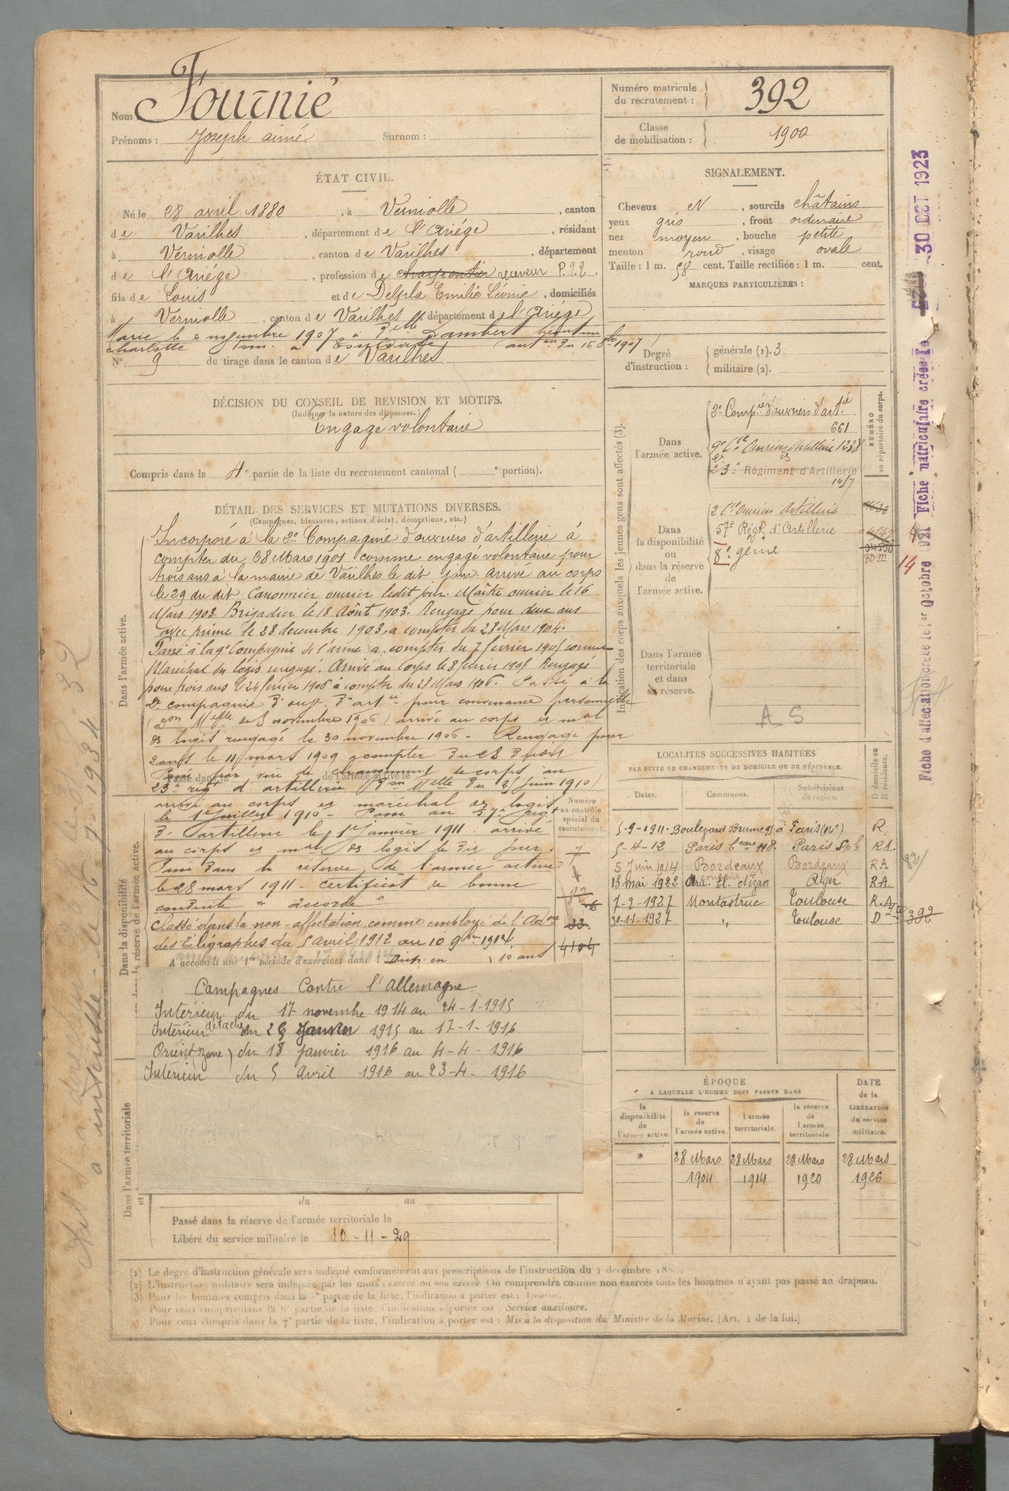 Nom Fournié
Prénoms : Joseph aimé Surnom :
Numéro matricule du recrutement : 392
Classe de mobilisation : 1900
ÉTAT CIVIL.
Né le 28 avril 1880, à Verniolle, canton
de Varilhes, département de l'Ariège, résidant
à Verniolle, canton de Varilhes, département
de l'Ariège, profession de charpentier receveur P.
fils de Louis et de Delpla Emilie, domiciliés
à Verniolle, canton de Varilhes, département de l'Ariège
Marié le novembre 1907 à Lambert
Charlotte
N° 9 de tirage dans le canton de Varilhes
SIGNALEMENT.
Cheveux N, sourcils châtains
yeux gris, front ordinaire
nez moyen, bouche petite
menton rond, visage ovale
Taille : 1 m. 58 cent. Taille rectifiée : 1 m. cent.
MARQUES PARTICULIÈRES :
Degré d'instruction : générale (1). 3
militaire (2).
DÉCISION DU CONSEIL DE REVISION ET MOTIFS.
(Indiquer la nature des dispenses.)
Engagé volontaire
Compris dans la 4e partie de la liste du recrutement cantonal ( e portion).
DÉTAIL DES SERVICES ET MUTATIONS DIVERSES.
(Campagnes, blessures, actions d'éclat, décorations, etc.)
Dans l'armée active.
Incorporé à la 3e Compagnie d'ouvriers d'artillerie à
compter du 28 Mars 1901 comme engagé volontaire pour
trois ans à la mairie de Varilhes le dit jour. Arrivé au corps
le 29 du dit. Canonnier ouvrier ledit jour. Maître ouvrier le 16
Mars 1902. Brigadier le 18 Août 1903. Rengagé pour deux ans
avec prime le 28 décembre 1903, à compter du 28 Mars 1904.
Passé à la 9e Compagnie de l'arme à compter du 7 février 1905 comme
Maréchal des logis rengagé. Arrivé au Corps le 8 février 1905 Rengagé
pour trois ans le 24 février 1906 à compter du 28 Mars 1906. Passé à la
2e compagnie d'ouv. d'artie pour convenance personnelle
(don Melle du 5 novembre 1906) arrivé au corps et mal
des logis rengagé le 30 novembre 1906 - Rengagé pour
2 ans le 11 mars 1909 à compter du 28 dudit
Passé par voie de changement de corps au
23e régt d'artillerie
arrivé au corps et maréchal des logis
le 1er juillet 1910 - Passé au 57e régt
d'artillerie le 1er janvier 1911. arrivé
au corps et mal des logis le dit jour.
Passé dans la réserve de l'armée active
le 28 mars 1911 - certificat de bonne
conduite "accordé"
Classé dans la non-affectation comme employé de l'Adon
des télégraphes du 5 avril 1912 au 10 9bre 1914.
A accompli une 1re période d'exercices dans
Campagnes Contre l'Allemagne
Intérieur du 17 novembre 1914 au 24-1-1915
Intérieur détaché du 25 Janvier 1915 au 17-1-1916
Orient du 18 Janvier 1916 au 4-4-1916
Intérieur du 5 Avril 1916 au 23-4-1916
du au
Passé dans la réserve de l'armée territoriale le
Libéré du service militaire le 10-11-29
Dans la disponibilité ou dans la réserve de l'armée active.
Dans l'armée territoriale
Numéro au contrôle spécial du recrutement.
4104
Indication des corps auxquels les jeunes gens sont affectés (3).
NUMÉRO au répertoire du corps.
Dans l'armée active.
3e Compie d'ouvriers d'artie
661
9e Cie Ouvriers Artillerie 1328
23e Régiment d'Artillerie
1457
Dans la disponibilité ou dans la réserve de l'armée active.
2 Cie Ouvriers Artillerie
57e Régt d'Artillerie
8e génie
14
Dans l'armée territoriale et dans sa réserve.
A S
LOCALITÉS SUCCESSIVES HABITÉES
PAR SUITE DE CHANGEMENTS DE DOMICILE OU DE RÉSIDENCE.
Dates. Communes. Subdivisions de région. D domicile ou R résidence.
5-9-1911 Boulevard Brune 95 à Paris (14e) R.
5-4-12 Paris 118 Paris RA
5 Juin 1914 Bordeaux Bordeaux RA
13 mai 1922 Alger RA
7-2-1927 Montastruc Toulouse R.A
30-11-1927 " Toulouse D 392
ÉPOQUE
À LAQUELLE L'HOMME DOIT PASSER DANS
la disponibilité de l'armée active. la réserve de l'armée active. l'armée territoriale. la réserve de l'armée territoriale
DATE de la LIBÉRATION du service militaire.
" 28 Mars 1904 28 Mars 1914 28 Mars 1920 28 Mars 1926
(1) Le degré d'instruction générale sera indiqué conformément aux prescriptions de l'instruction du 4 décembre
(2) L'instruction militaire sera indiquée par les mots : exercé ou non exercé. On comprendra comme non exercés tous les hommes n'ayant pas passé au drapeau.
(3) Pour les hommes compris dans la partie de la liste, l'indication à porter est :
Pour ceux compris dans la 6e partie de la liste, l'indication à porter est : Service auxiliaire.
Pour ceux compris dans la 7e partie de la liste, l'indication à porter est : Mis à la disposition du Ministre de la Marine. (Art. 4 de la loi.)
Fiche matriculaire créée le 30 OCT 1923
Fiche d'affectation créée le 1er Octobre 921